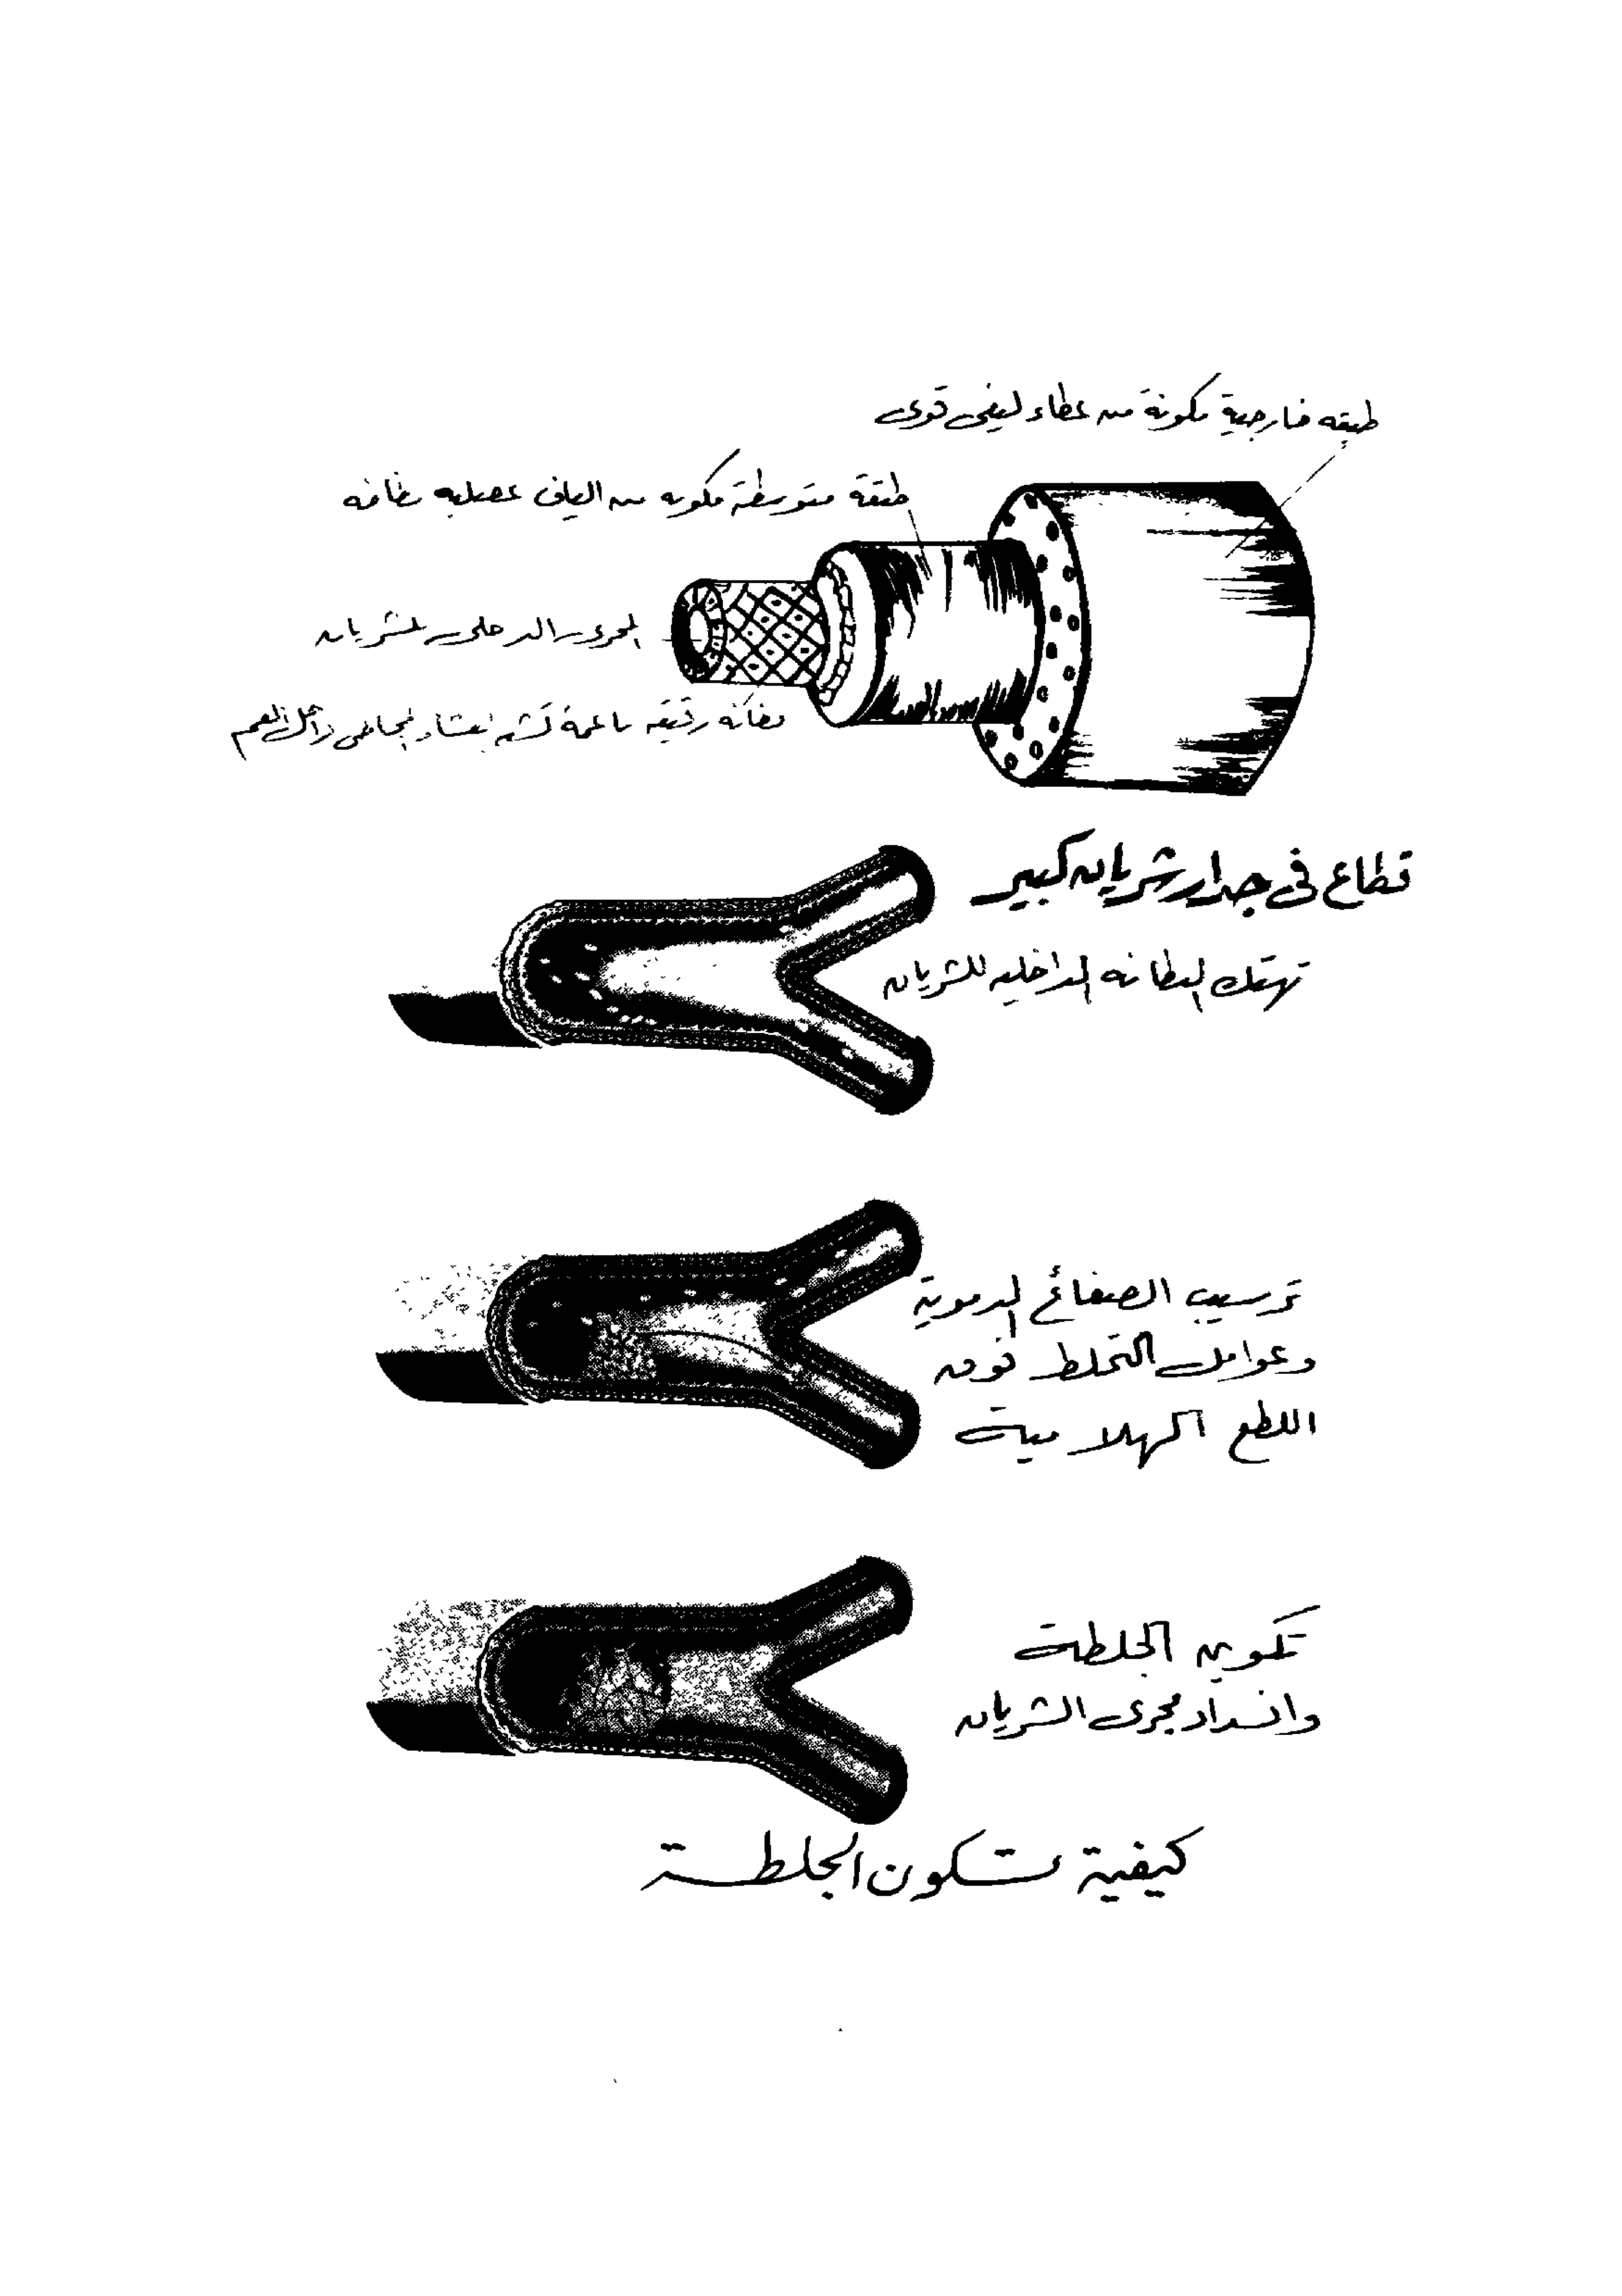 طبقه خارجية مكونة من غطاء ليفى قوى
طبقة متوسطة مكونه من الياف عضليه
المجرى الداخلى للشريان
رقيقه ناعمة تشبه الغشاء المخاطى داخل الفم
قطاع فى جدار شريان كبير
تهتك البطانه الداخليه للشريان
ترسيب الصفائح الدموية
وعوامل التجلط فوق
اللطع الهلامية
تكوين الجلطة
وانسداد مجرى الشريان
كيفية تكون الجلطة